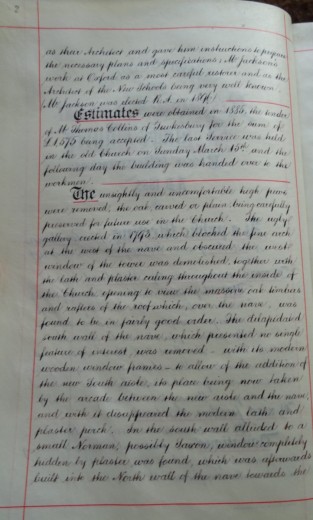 as their Architect and gave him instructions to prepare
the necessary plans and specifications; Mr Jackson's
work at Oxford as a most careful restorer and as the
Architect of the New Schools being very well known.
Mr Jackson was elected R.A. in
Estimates were obtained in 1885, the tender
of Mr Thomas Collins of Tewkesbury for the sum of
£1575 being accepted. The last Service was held
in the old Church on Sunday March 15th and the
following day the building was handed over to the
workmen.
The unsightly and uncomfortable high pews
were removed, the oak, carved or plain, being carefully
preserved for future use in the Church. The ugly
gallery erected in 1793, which blocked the fine arch
at the west of the nave and obscured the west
window of the tower was demolished, together with
the lath and plaster ceiling throughout the inside of
the Church opening to view the massive oak timbers
and rafters of the roof which, over the nave, was
found to be in fairly good order. The dilapidated
south wall of the nave, which presented no single
feature of interest, was removed - with its modern
wooden window frames - to allow of the addition of
the new South aisle, its place being now taken
by the arcade between the new aisle and the nave;
and with it disappeared the modern lath and
plaster porch. In the south wall alluded to a
small Norman, possibly Saxon, window completely
hidden by plaster was found, which was afterwards
built into the North wall of the nave towards the